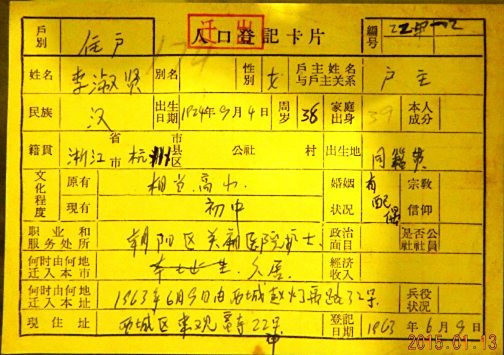 戶別 住戶 迁出 人口登記卡片 編号
姓名 李淑贤 別名 性別 女 戶主姓名与戶主关系 戶主
民族 汉 出生日期 1924年9月4日 周岁 38 家庭出身 39 本人成分
籍貫 浙江 省市 杭州 市县区 公社 村 出生地 同籍貫
文化程度 原有 相当高小 婚姻状况 有配偶 宗教信仰
現有 初中
职业和服务处所 朝阳区关廂医院护士 政治面目 是否公社社員
何时由何地迁入本市 久居 經济收入
何时由何地迁入本址 1963年6月9日由西城 32号 兵役状况
現住址 西城区东观音寺22号 登記日期 1963年6月9日
2015.01.13